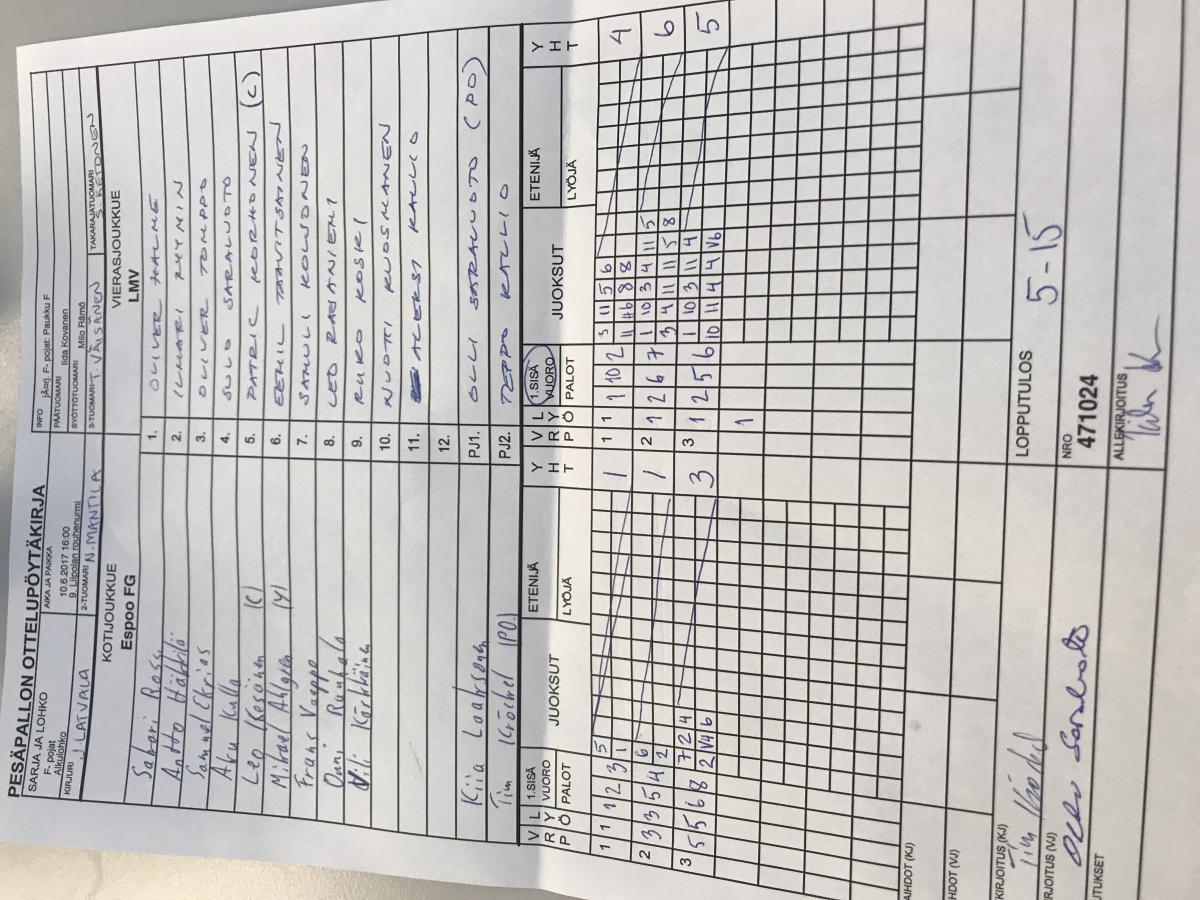 PESÄPALLON OTTELUPÖYTÄKIRJA
SARJA JA LOHKO
F- pojat
Alkulohko
AIKA JA PAIKKA
10.6.2017 16:00
9. Liipolan rouhenurmi
INFO jÄmj. F- pojat: Paukku F
PÄÄTUOMARI Iida Kovanen
SYÖTTÖTUOMARI Milo Rämö
KIRJURI J. LATVALA
2-TUOMARI N. MANTILA
3-TUOMARI T VÄISÄNEN
TAKARAJATUOMARI S. KETONEN
KOTIJOUKKUE
Espoo FG
VIERASJOUKKUE
LMV
Sakari Rossi
1. OLIVER HALME
Antto Hättilä
2. ILMARI RYYMIN
3. OLIVER TOMPPO
Aku Kulla
4. SULO SARALUOTO
Leo Keränen (C)
5. PATRIC KORHONEN (C)
Mikael Ahlgren
6. EEMIL TAAVITSAINEN
Frans Vaeppo
7. SAMULI KOLSONEN
Onni Ruuhala
8. LEO RAJANIEMI
Vili Kärkkäinen
9. RUKO KOSKI
10. NUUTTI KUOSMANEN
11. ALEKSI KALLIO
12.
Kiia Loaksonen
PJ1. OLLI SARALUOTO (PO)
Tim Kröchel (PO)
PJ2. TEPPO KALLIO
V R P
L Y Ö
1.SISÄ VUORO
PALOT
JUOKSUT
ETENIJÄ
LYÖJÄ
Y H T
V R P
L Y Ö
1.SISÄ VUORO
PALOT
JUOKSUT
ETENIJÄ
LYÖJÄ
Y H T
1 1 1 2 3 5 1 1
1 1 1 10 2 3 11 5 6 4
2 3 3 5 4 6 2 1
2 1 2 6 7 1 10 3 4 11 5 6
3 4 11 11 5 8
3 5 5 6 8 7 2 4 3
2 V4 6
3 1 2 5 6 1 10 3 11 4 5
10 11 4 4 V6
1
LOPPUTULOS 5-15
NRO
471024
ALLEKIRJOITUS
AIHDOT (KJ)
HDOT (VJ)
KIRJOITUS (KJ)
RJOITUS (VJ)
UTUKSET